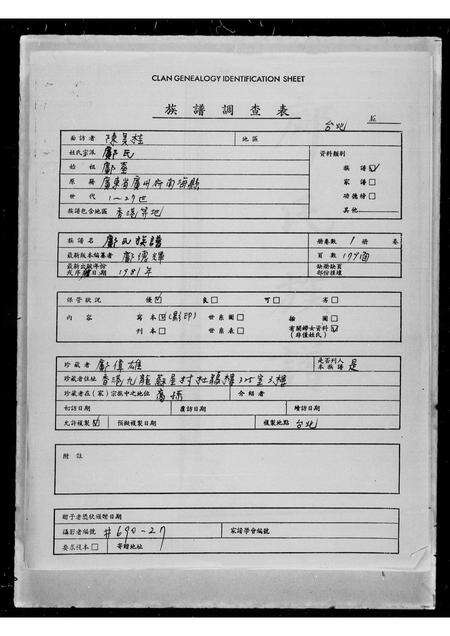 CLAN GENEALOGY IDENTIFICATION SHEET
族譜調查表
台北
面訪者 陳美桂 地區
姓氏宗派 鄺氏 資料類別
始祖 鄺 族譜☑
原籍 廣東省廣州府南海縣 家譜□
世代 1—27世 功德榜□
族譜包含地區 香港等地 其他
族譜名 鄺氏族譜 冊卷數 1冊 卷
最新版本編纂者 鄺 頁數
日期 1981年
保管狀況 優☑ 良□ 可□ 劣□
內容 寫本☒(影印) 世系圖□ 插圖□
刊本□ 世系表□ 有關婦女資料☑
(非僅姓氏)
珍藏者 鄺偉雄 是否列入本族譜 是
珍藏者住址 香港九龍
珍藏者在(家)宗族中之地位 介紹者
初訪日期 覆訪日期 續訪日期
允許複製☑ 預擬複製日期 複製地點 台北
附註
攝影者編號 #690-27 家譜學會編號
要求複本□ 寄贈地址